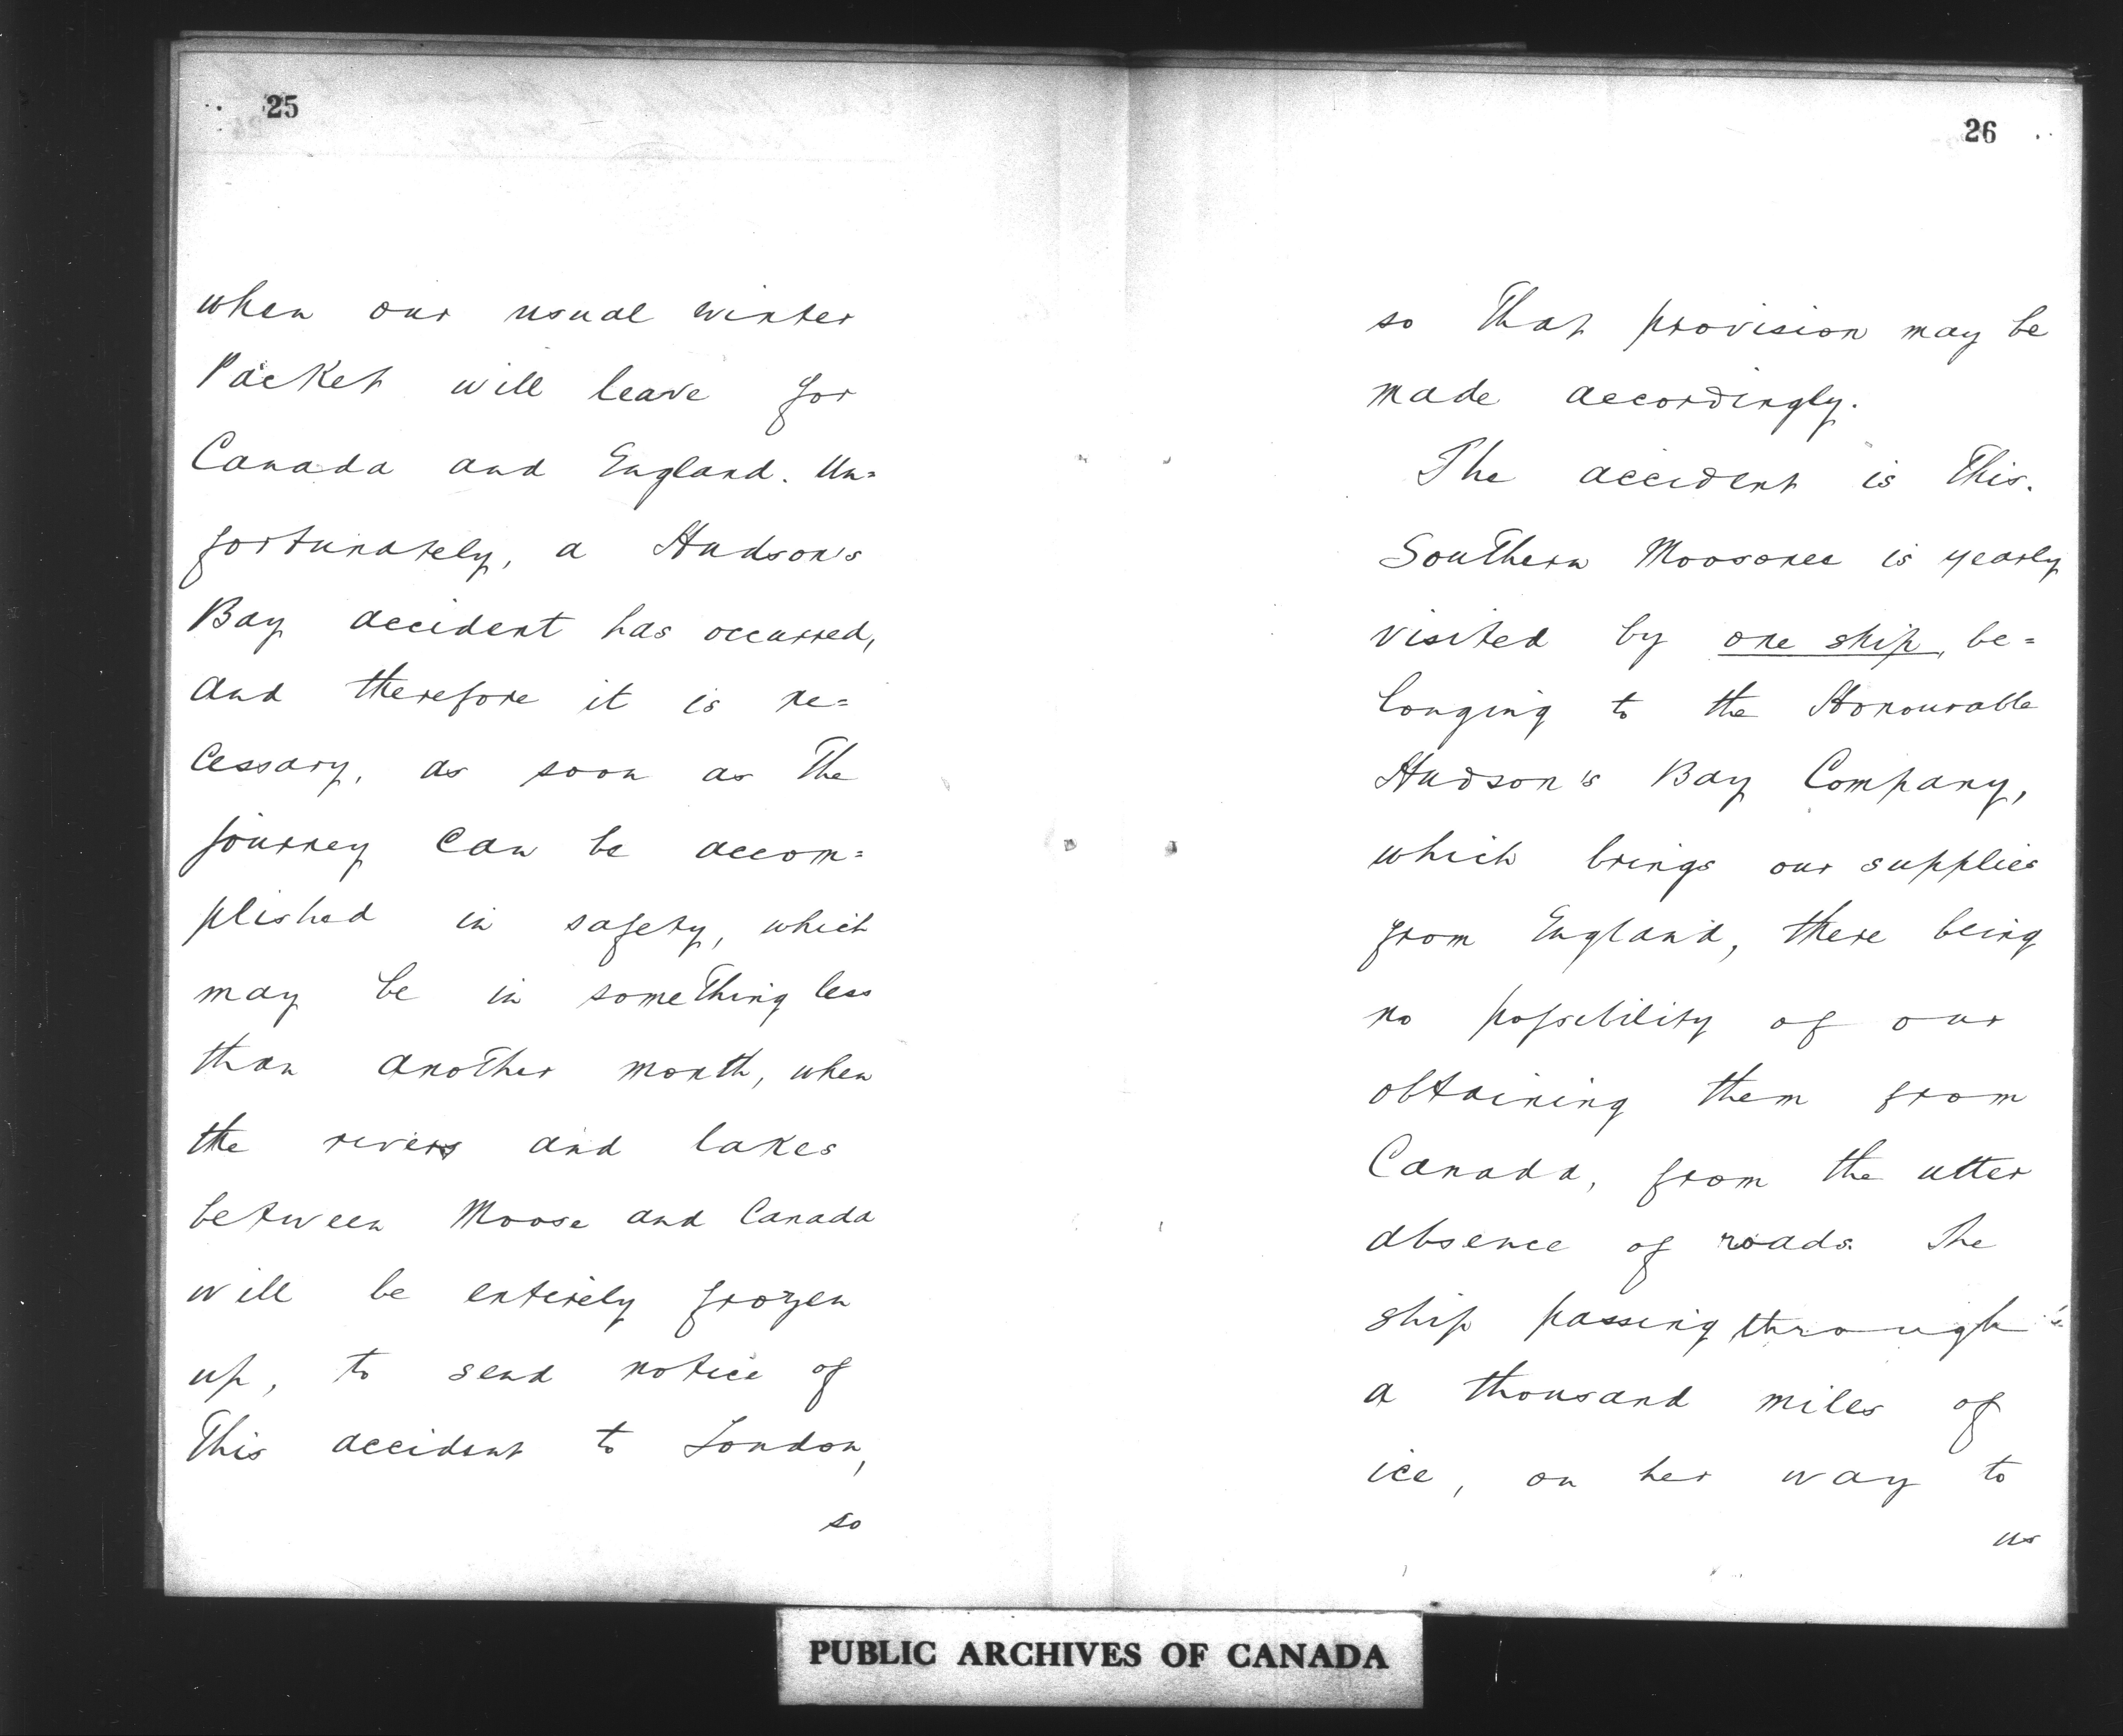 25
when our usual winter
Packet will leave for
Canada and England. Un=
fortunately, a Hudson's
Bay accident has occurred,
and therefore it is ne=
cessary, as soon as the
journey can be accom=
plished in safety, which
may be in something less
than another month, when
the rivers and lakes
between Moose and Canada
will be entirely frozen
up, to send notice of
This accident to London,
so
26
so that provision may be
made accordingly.
The accident is this.
Southern Moosonee is yearly
visited by one ship, be=
longing to the Honourable
Hudson's Bay Company,
which brings our supplies
from England, there being
no possibility of our
obtaining them from
Canada, from the utter
absence of roads. The
ship passing through
a thousand miles of
ice, on her way to
us
PUBLIC ARCHIVES OF CANADA